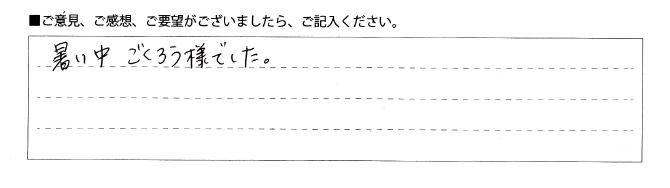 ■ご意見、ご感想、ご要望がございましたら、ご記入ください。
暑い中 ごくろう様でした。